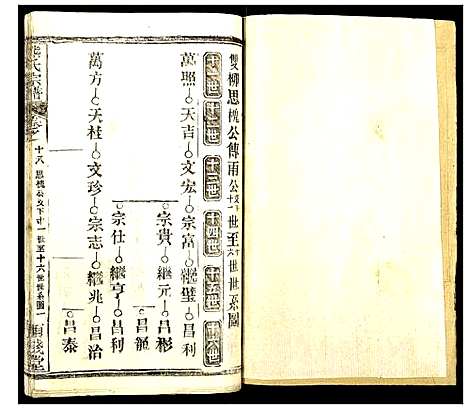 雙柳思槐公傳甬公文下十一世至十六世世系圖
十一世 十二世 十三世 十四世 十五世 十六世
萬照 天吉 文宏 宗富 繼璧 昌利
宗貴 繼元 昌彬
昌領
宗仕 繼亨 昌利
萬方 天柱 文珍 宗志 繼兆 昌治
昌泰
氏宗譜
十六 思槐公文下十一世至十六世世系圖一
堂